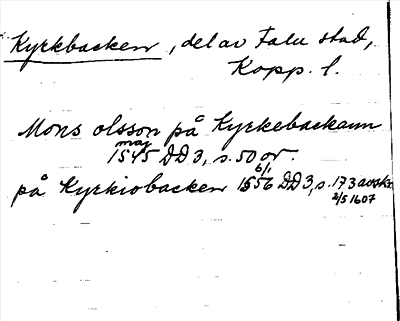 Kyrkbacken, del av Falu stad,
Kopp. l.
Mons olsson på Kyrkebackann
maj
1545 DD3, s. 50 or.
6/1
på Kyrkiobacken 1556 DD3, s. 173 avskr.
2/5 1607